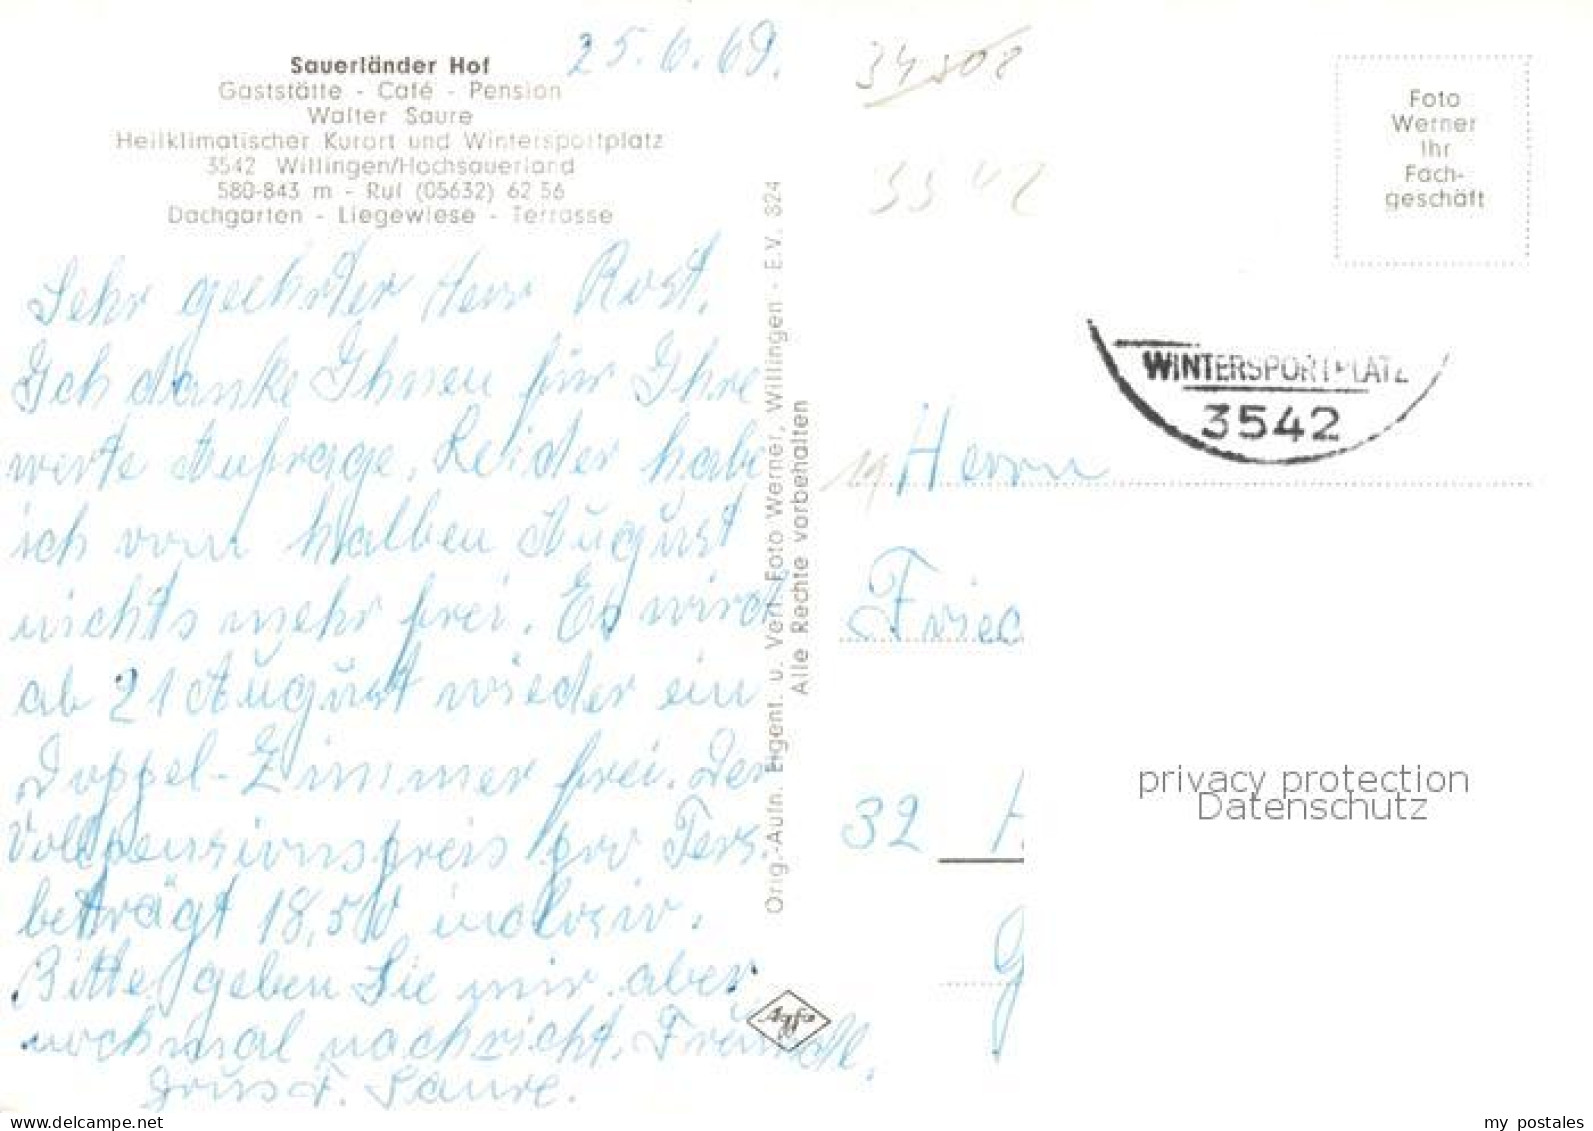 25.6.69.
Sauerländer Hof
Gaststätte - Café - Pension
Walter Saure
Heilklimatischer Kurort und Wintersportplatz
3542 Willingen/Hochsauerland
580-843 m - Ruf (05632) 62 56
Dachgarten - Liegewiese - Terrasse
Sehr geehrter Herr Rost.
Ich danke Ihnen für Ihre
werte Aufrage. Leider habe
ich vom halben August
nichts mehr frei. Es wird
ab 21 August wieder ein
Doppel-Zimmer frei. Der
Vollpensionspreis pro Pers.
beträgt 18,50 inclusiv.
Bitte geben Sie mir aber
nochmal nachricht. Freundl.
Grus F. Saure.
Orig.-Aufn. Eigent. u. Verl. Foto Werner, Willingen - E.V. 824
Alle Rechte vorbehalten
Agfa
34508
3542
Foto
Werner
Ihr
Fach-
geschäft
WINTERSPORTPLATZ
3542
Herrn
Fried
32
G
privacy protection
Datenschutz
www.delcampe.net
my_postales